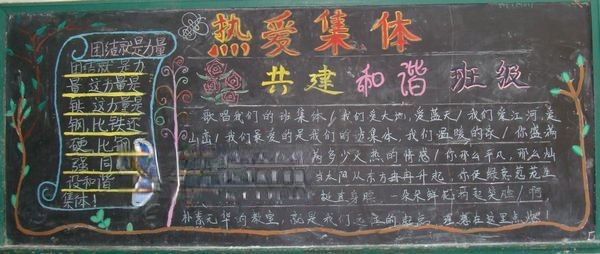 热爱集体
共建和谐班级
团结就是力量
团结就是力
量 这力量是
铁 这力量是
钢 比铁还
硬 比钢
强 同
设和谐
集体!
歌唱我们的班集体/我们爱大地,爱蓝天/我们爱江河,是
山峦/我们最爱的是我们的班集体,我们温暖的家/你盛满
多少火热的情感/你那么平凡,那么灿
当太阳从东方冉冉升起,你使绿意花在
挺直身躯 一朵朵鲜花 起笑脸/啊
朴素无华的教室,就是我们 的起点,理想在这里点燃!